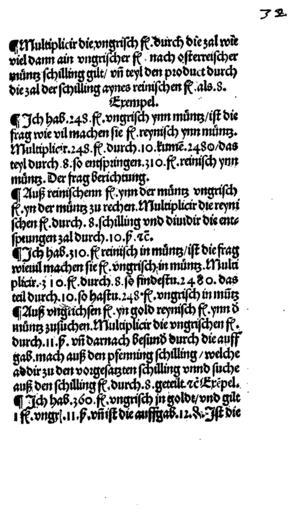 32
¶ Multiplicir die vngrisch fl. durch die zal wie
viel dann ain vngrischer fl. nach osterreischer
müntz schilling gilt/ vñ teyl den product durch
die zal der schilling aynes reinischen fl. als. 8.
Exempel.
¶ Ich hab. 248. fl. vngrisch ynn müntz/ ist die
frag wie vil machen sie fl. reynisch ynn müntz.
Multiplicir. 248. fl. durch. 10. kumē. 2480/ das
teyl durch. 8. so entspringen. 310. fl. reinisch ynn
müntz. Der frag berichtung.
¶ Auß reinischenn fl. ynn der müntz vngrisch
fl. yn der müntz zu rechen. Multiplicir die reyni
schen fl. durch. 8. schilling vnd diuidir die ent-
sprungen zal durch. 10. ß. ꝛc̄.
¶ Ich hab. 310. fl. reinisch in müntz/ ist die frag
wieuil machen sie fl. vngrisch in müntz. Multi
plicir. 310. fl. durch. 8. so findestu. 2480. das
teil durch. 10. so hastu. 248. fl. vngrisch in müntz
¶ Auß vngrischen fl. yn gold reynisch fl. ynn d
müntz zusuchen. Multiplicir die vngrischen fl.
durch. 11. ß. vñ darnach besund durch die auff
gab. mach auß den pfenning schilling/ welche
addir zu den vorgesatzten schilling vnnd suche
auß den schilling fl. durch. 8. geteilt ꝛc̄ Exēpel.
¶ Ich hab. 360. fl. vngrisch in goldt/ vnd gilt
1 fl. vngr. 11. ß. vñ ist die auffgab. 12. ₰. Ist die